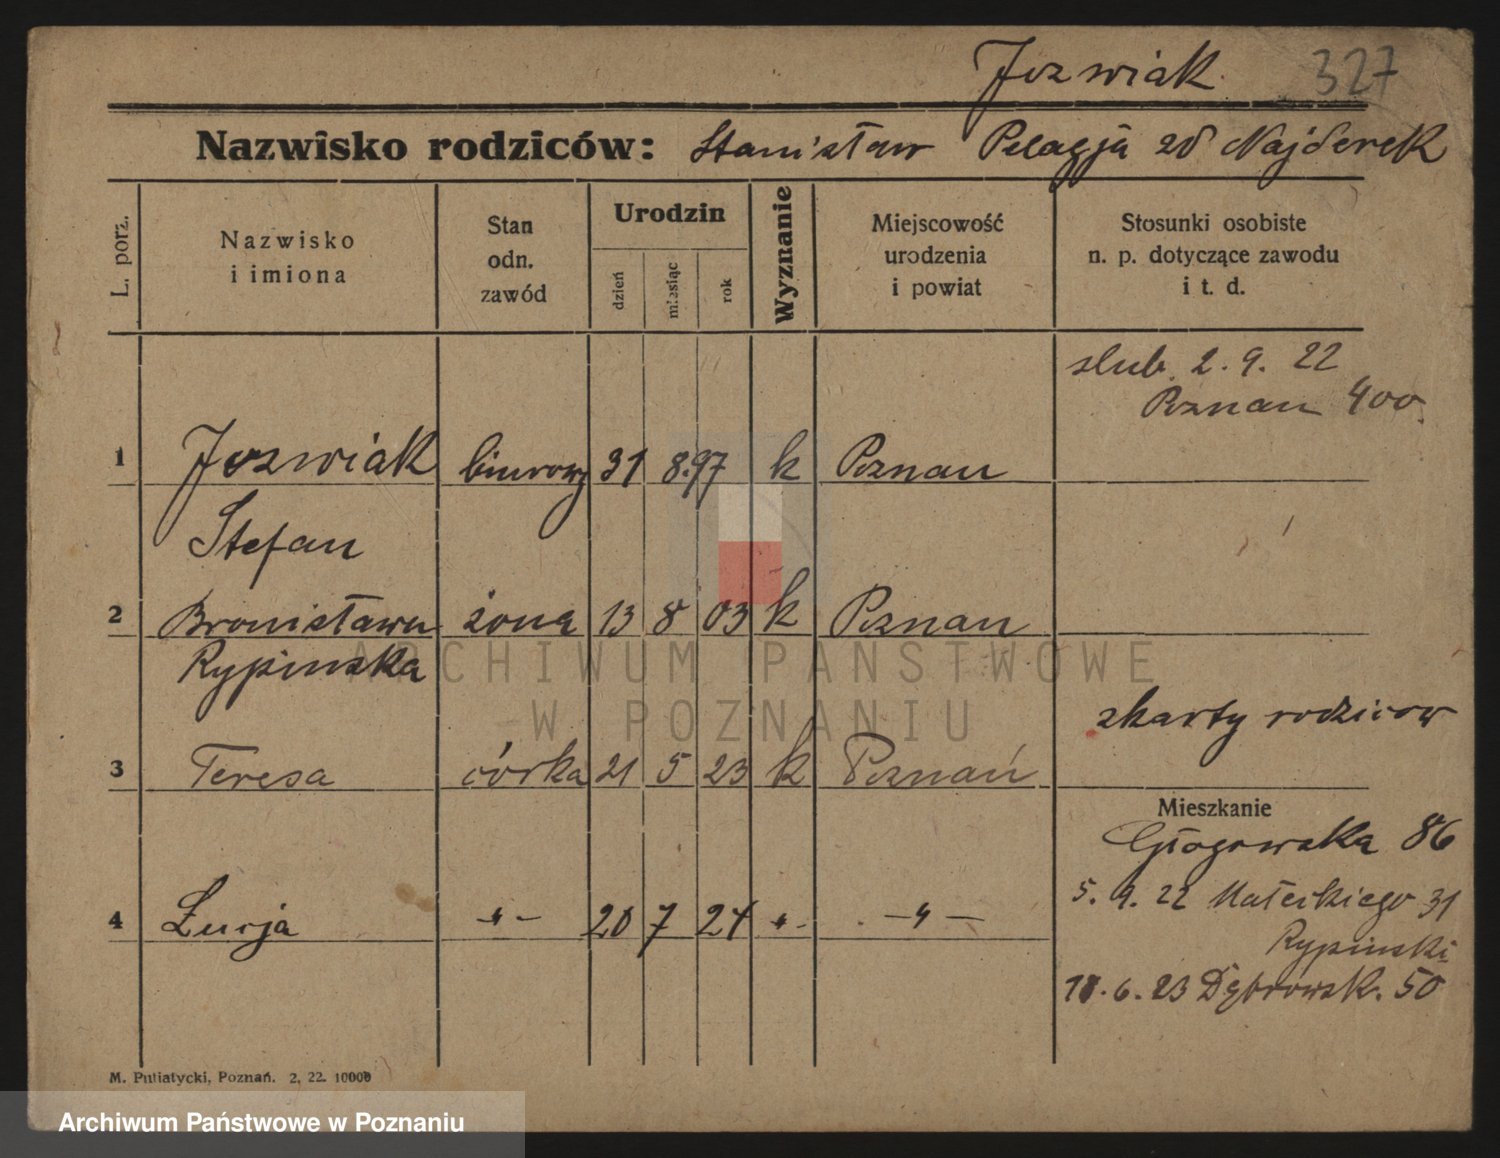 Jozwiak 327
Nazwisko rodziców: Stanisław Pelagja zd Najderek
L. porz.
Nazwisko
i imiona
Stan
odn.
zawód
Urodzin
dzień
miesiąc
rok
Wyznanie
Miejscowość
urodzenia
i powiat
Stosunki osobiste
n. p. dotyczące zawodu
i t. d.
slub 2.9.22
Poznan 400
1 Jozwiak biurowy 31 8.97 k Poznan
Stefan
2 Bronisława żona 13 8 03 k Poznan
Rypinska
ARCHIWUM PAŃSTWOWE
W POZNANIU
z karty rodzicow
3 Teresa córka 21 5 23 k Poznań
Mieszkanie
Głogowska 86
5.9.22 Małeckiego 31
4 Łucja -"- 20 7 24 -"- -"-
Rypinski
18.6.23 Dąbrowsk. 50
M. Putiatycki, Poznań. 2, 22. 10000
Archiwum Państwowe w Poznaniu